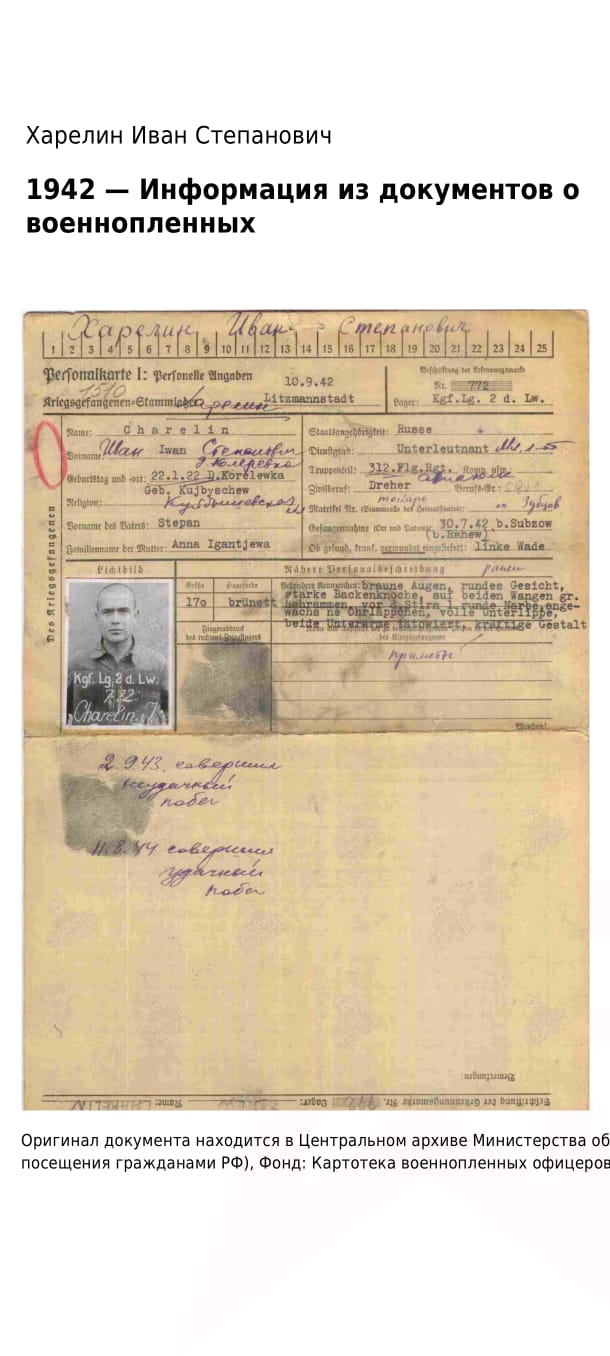 Харелин Иван Степанович
1942 — Информация из документов о
военнопленных
Харелин Иван Степанович
1 2 3 4 5 6 7 8 9 10 11 12 13 14 15 16 17 18 19 20 21 22 23 24 25
Personalkarte I: Personelle Angaben
1510
10.9.42
Beschriftung der Erkennungsmarke
Nr. 772
Kriegsgefangenen-Stammlager: Litzmannstadt
Харелин
Lager: Kgf.Lg. 2 d. Lw.
Des Kriegsgefangenen
Name: Charelin
Vorname: Иван Iwan Степанович
Geburtstag und -ort: 22.1.22 D.Korelewka
Geb. Kujbyschew
Religion: Куйбышевской
Vorname des Vaters: Stepan
Familienname der Mutter: Anna Igantjewa
Staatsangehörigkeit: Russe
Dienstgrad: Unterleutnant
Truppenteil: 312.Flg.Rgt. Komp. usw.
Zivilberuf: Dreher Berufs-Gr.:
токарь
Matrikel Nr. (Stammrolle des Heimatstaates): ок Зубцов
Gefangennahme (Ort und Datum): 30.7.42 b.Subzow
(b.Rshew)
Ob gesund, krank, verwundet eingeliefert: linke Wade
ранен
Lichtbild
Nähere Personalbeschreibung
Größe Haarfarbe
170 brünett
Fingerabdruck
des rechten Zeigefingers
Besondere Kennzeichen: braune Augen, rundes Gesicht,
starke Backenknoche, auf beiden Wangen gr.
Schrammen, vor d.Stirn 1 runde Narbe, ange-
wachs ne Ohrläppchen, volle Unterlippe,
beide Unterarme tätowiert, kräftige Gestalt
des Kriegsgefangenen
приметы
Kgf. Lg. 2 d. Lw.
772
Charelin, J.
Wenden!
2.9.43. совершил
неудачный
побег
11.8.44 совершил
удачный
побег
Bemerkungen:
Beschriftung der Erkennungsmarke Nr. 772 Lager: Name: CHARELIN
Оригинал документа находится в Центральном архиве Министерства об
посещения гражданами РФ), Фонд: Картотека военнопленных офицеров